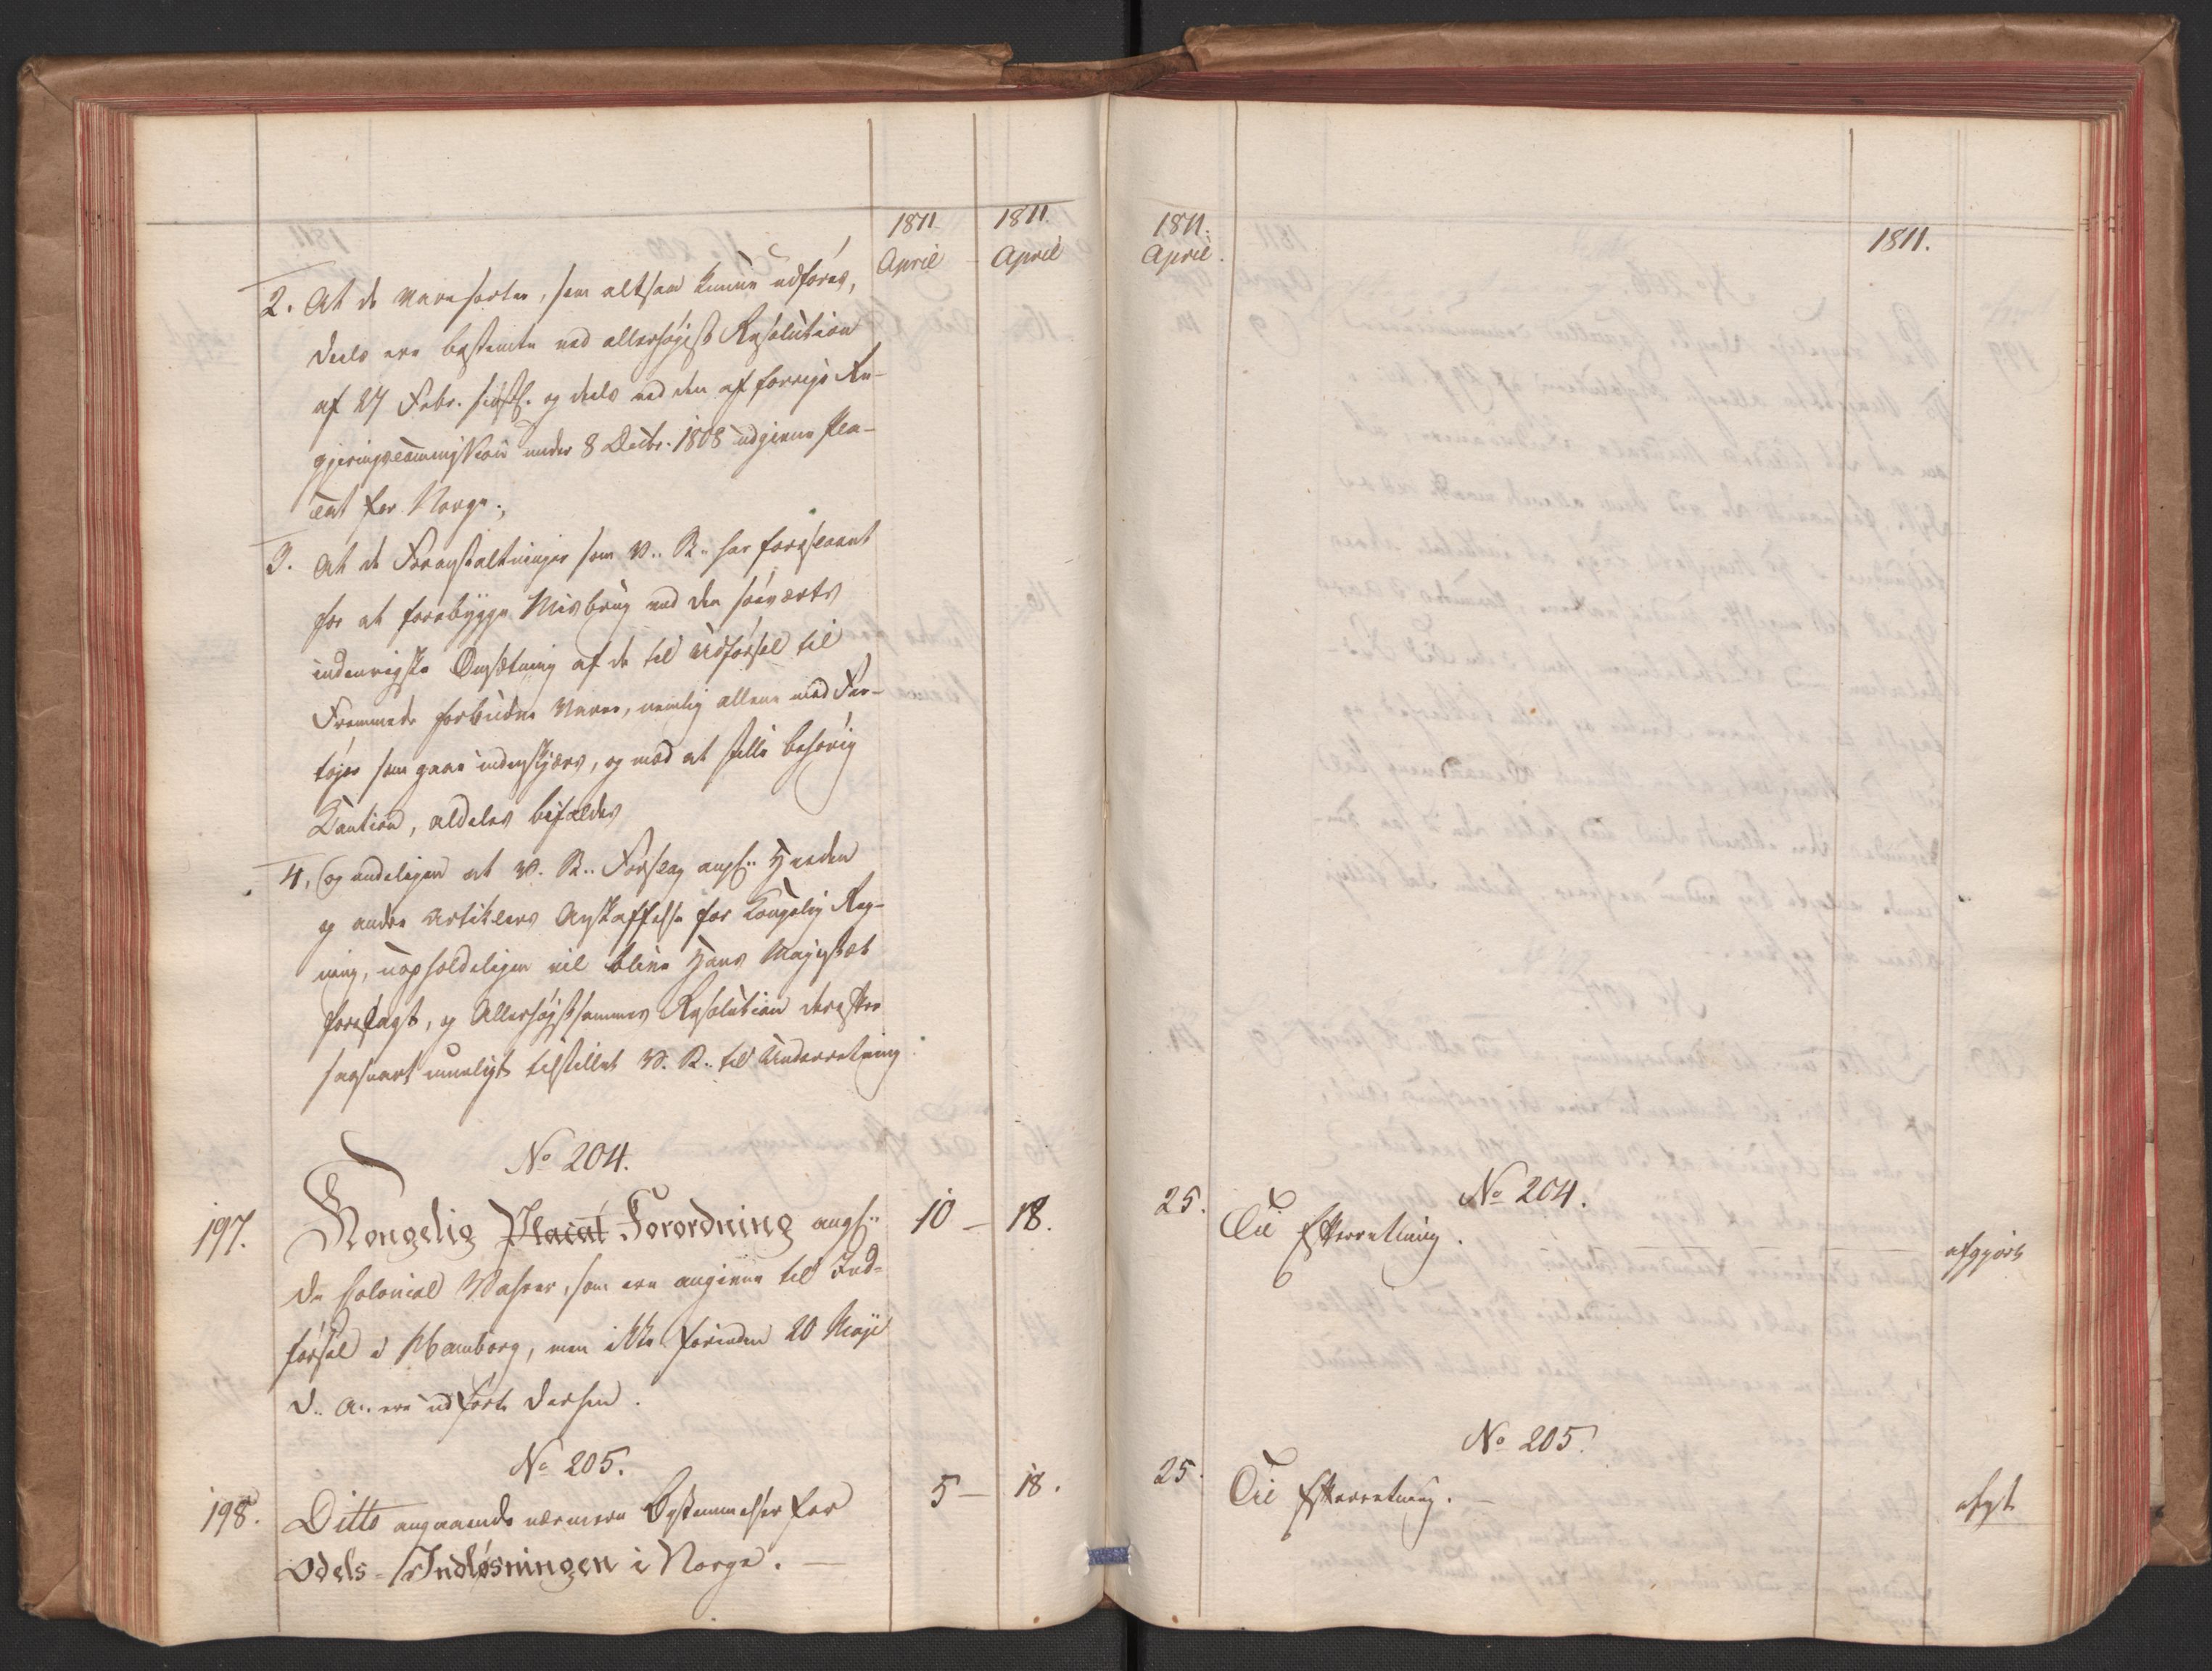 1811. April
1811. April
2. At de Varesorter, som altsaa kunne udføres,
deels ere bestemte ved allerhøjest Resolution
af 27 Febr. sidstl. og deels ved den af forrige Re-
gjeringscommission under 8 Decbr. 1808 udgivne Pla-
cat for Norge.,
3. At de Foranstaltninger som V.. R.. har foreslaaet
for at forebygge Misbrug ved den søeværts
indenrigske Omsætning af de til Udførsel til
Fremmede forbudne Varer, nemlig allene med Far-
tøjer som gaae indenskjærs, og mod at stille behørig
Caution, aldeles bifaldes
4, Og endeligen at V. R.. Forslag angl..
og andre Artiklers Anskaffelse for Kongelig Reg-
ning, uopholdeligen vil blive Hans Majestæt
forelagt, og Allerhøjstsammes Resolution derefter
saasnart mueligt tilstillet V. R.. til Underretning
No 204.
197. Kongelig Placat Forordning angl.. 10 — 18.
de Colonial Vahrer, som ere angivne til Ind-
førsel i Hamborg, men ikke forinden 20 Maji
d.. A.. ere udførte derhen.
No 205.
198. Ditto angaaende nærmere Bestemmelser for 5 — 18.
Odels-Indløsningen i Norge. —
1811. April.
1811.
No 204.
25. Til Efterretning. afgjort
No 205.
25. Til Efterretning. — afgt